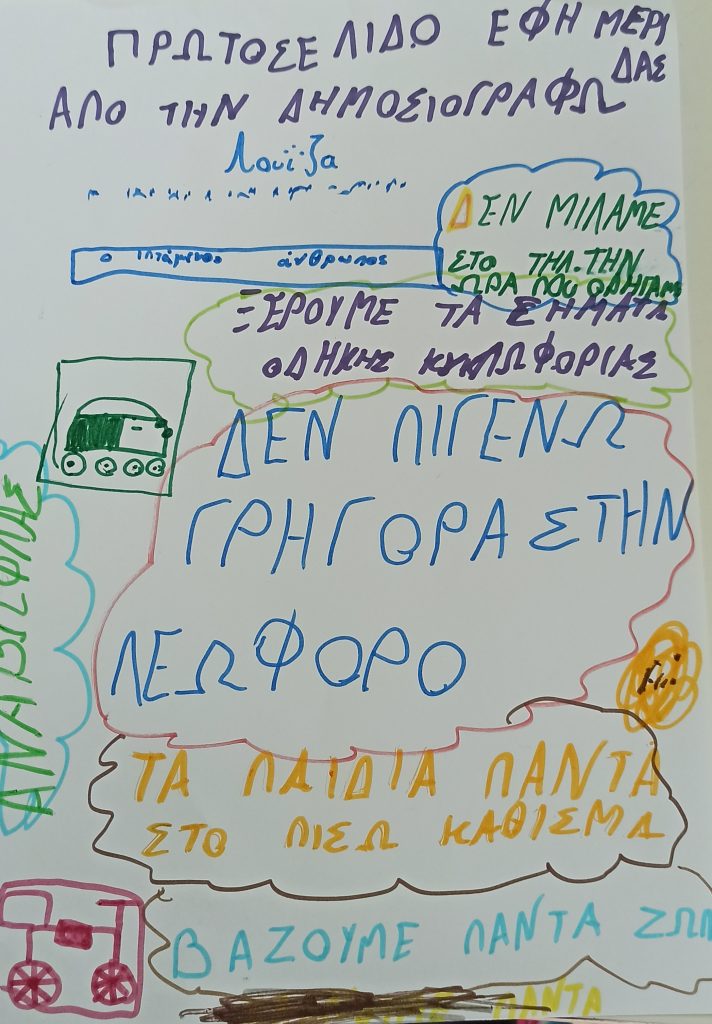 ΠΡΩΤΟΣΕΛΙΔΟ ΕΦΗΜΕΡΙ
ΔΑΣ
ΑΠΟ ΤΗΝ ΔΗΜΟΣΙΟΓΡΑΦΩ
Λουΐζα
ο ιπτάμενος άνθρωπος
ΔΕΝ ΜΙΛΑΜΕ
ΣΤΟ ΤΗΛ. ΤΗΝ
ΩΡΑ ΠΟΥ ΟΔΗΓΑΜΕ
ΞΕΡΟΥΜΕ ΤΑ ΣΗΜΑΤΑ
ΟΔΗΚΗΣ ΚΥΚΛΩΦΟΡΙΑΣ
ΔΕΝ ΠΙΓΕΝΩ
ΓΡΗΓΟΡΑ ΣΤΗΝ
ΛΕΩΦΟΡΟ
ΤΑ ΠΑΙΔΙΑ ΠΑΝΤΑ
ΣΤΟ ΠΙΣΩ ΚΑΘΙΣΜΑ
ΒΑΖΟΥΜΕ ΠΑΝΤΑ ΖΩΝ
ΠΑΝΤΑ